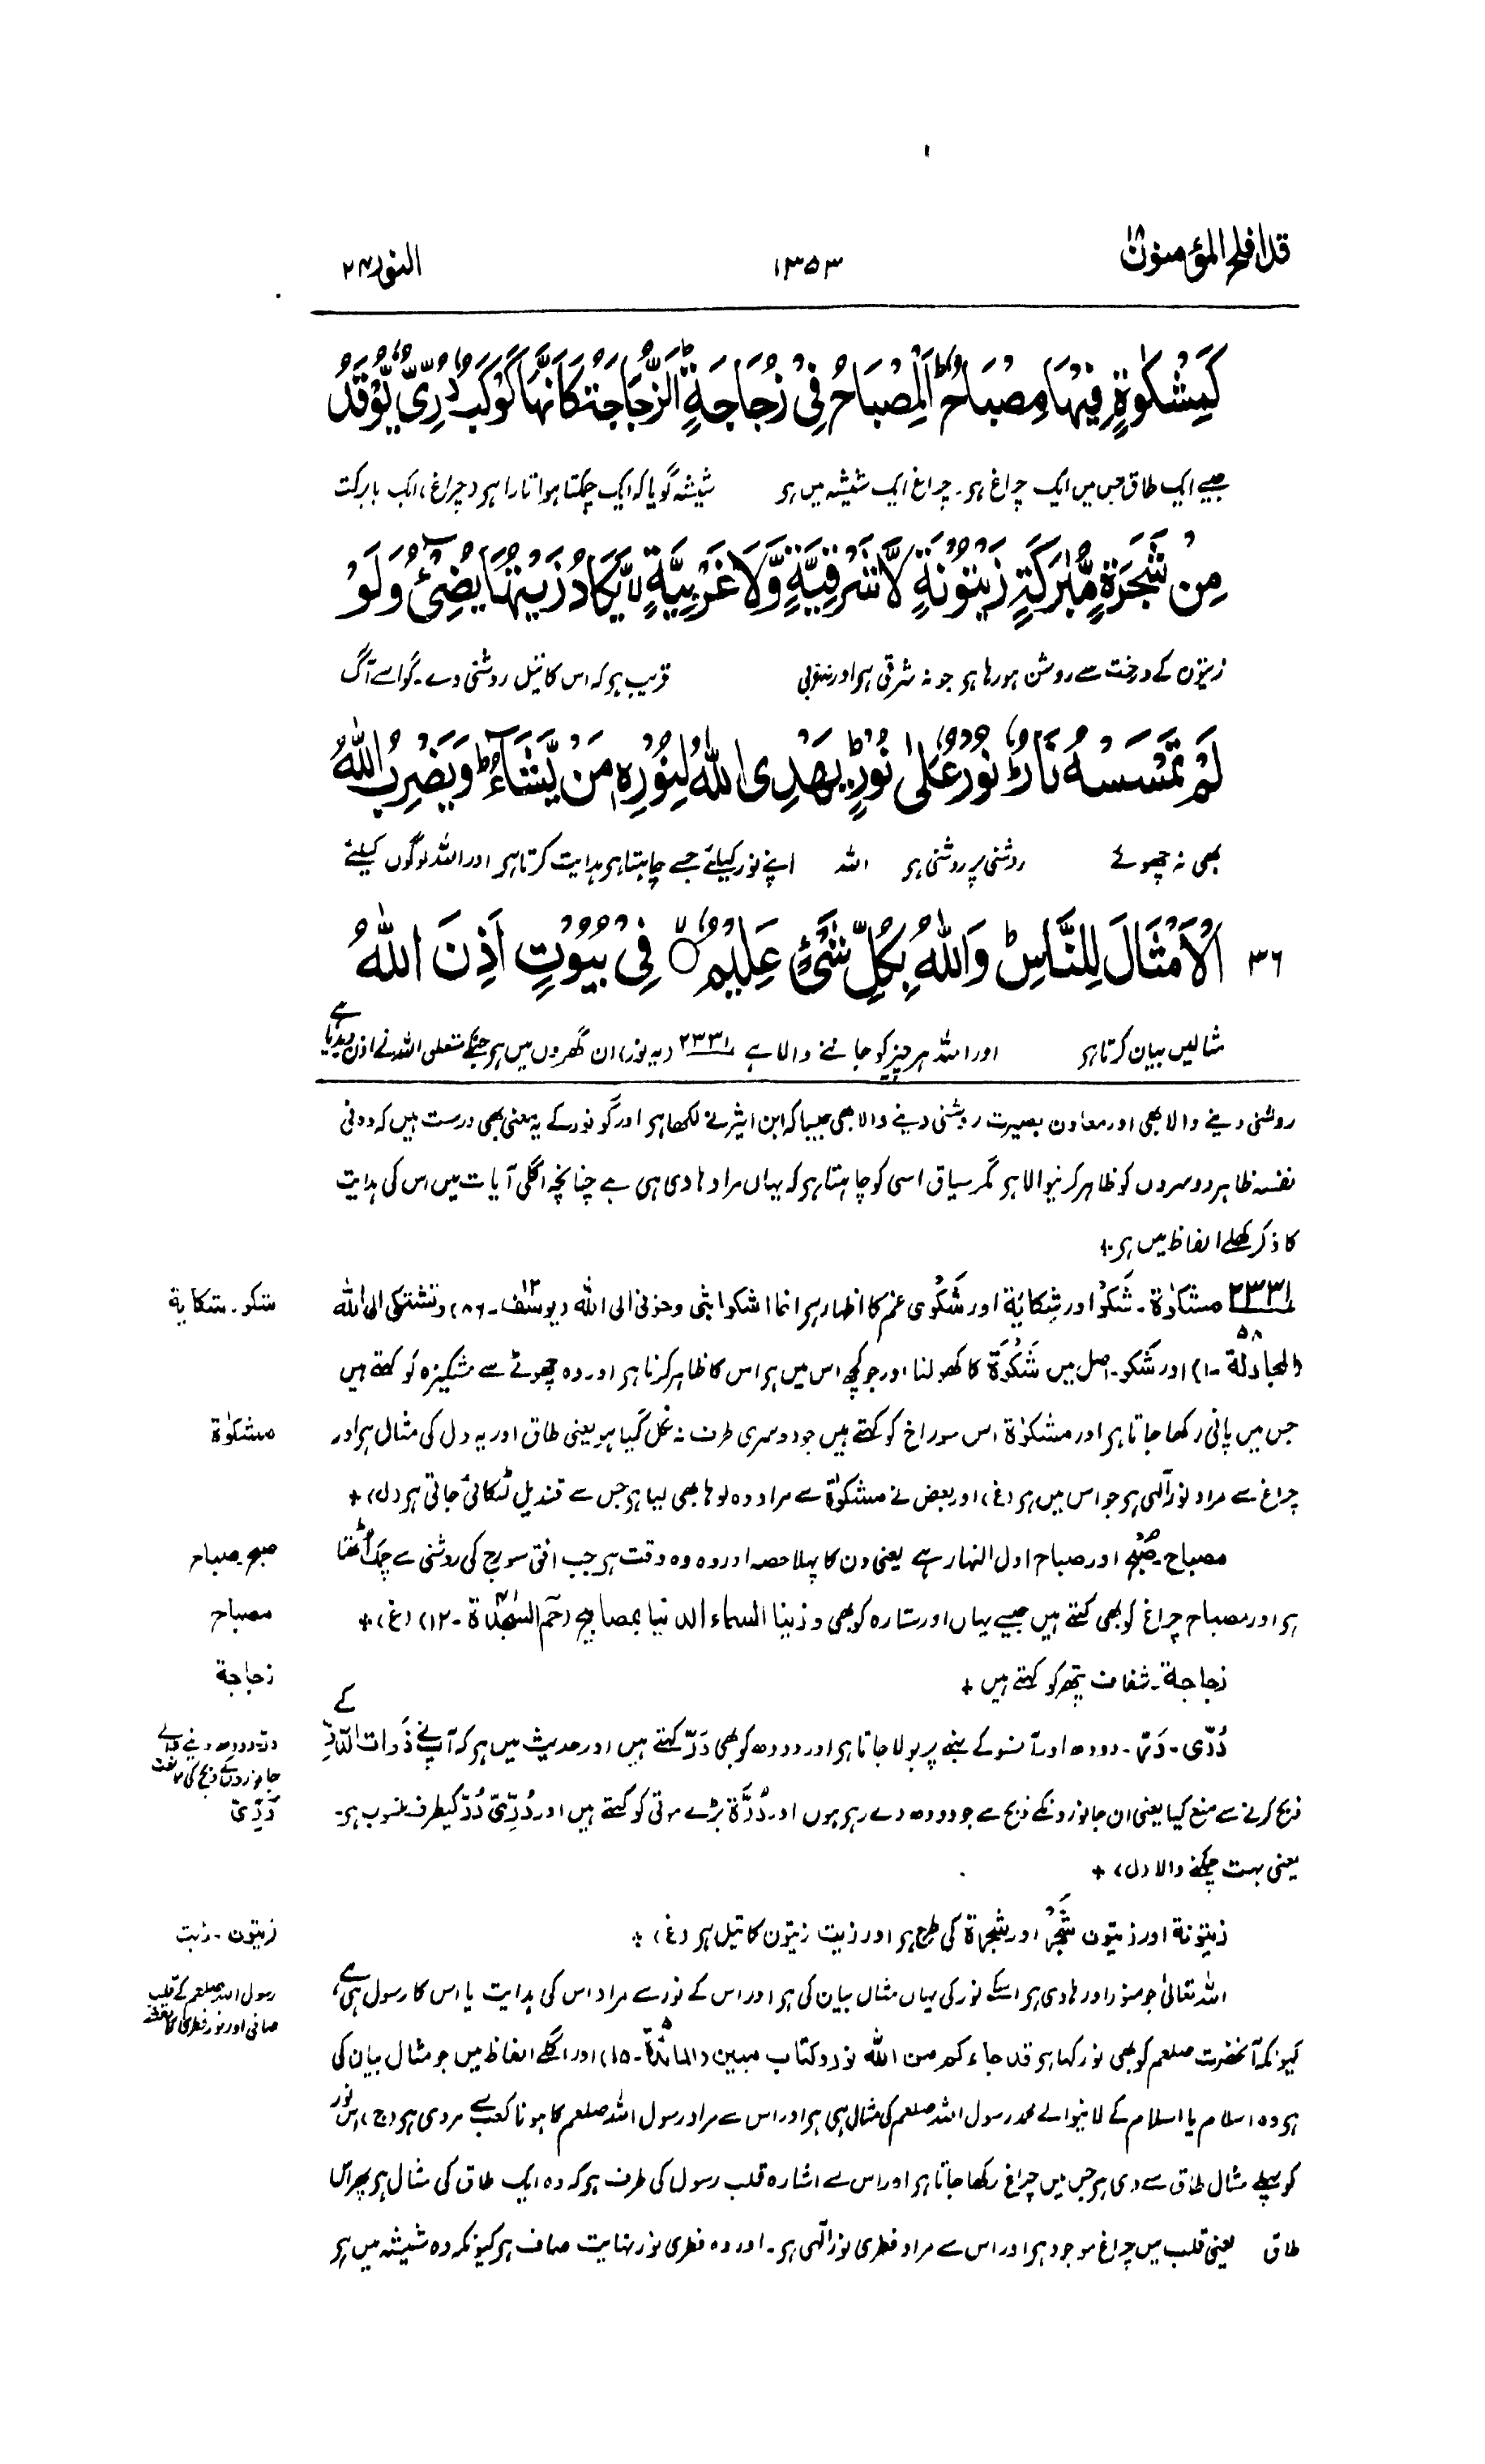 قد افلح المؤمنون ۱۸
۱۳۵۳
النور ۲۴
كَمِشْكٰوةٍ فِيْهَا مِصْبَاحٌ ؕ اَلْمِصْبَاحُ فِيْ زُجَاجَةٍ ؕ اَلزُّجَاجَةُ كَاَنَّهَا كَوْكَبٌ دُرِّيٌّ يُّوْقَدُ
جیسے ایک طاق جس میں ایک چراغ ہو۔ چراغ ایک شیشہ میں ہو شیشہ گویا کہ ایک چمکتا ہوا تارا ہو (چراغ) ایک بابرکت
مِنْ شَجَرَةٍ مُّبٰرَكَةٍ زَيْتُوْنَةٍ لَّا شَرْقِيَّةٍ وَّلَا غَرْبِيَّةٍ ۙ يَّكَادُ زَيْتُهَا يُضِيْٓءُ وَلَوْ
زیتون کے درخت سے روشن ہو رہا ہو جو نہ شرقی ہو اور نہ غربی قریب ہو کہ اس کا تیل روشنی دے۔ گو اسے آگ
لَمْ تَمْسَسْهُ نَارٌ ؕ نُوْرٌ عَلٰى نُوْرٍ ؕ يَهْدِى اللّٰهُ لِنُوْرِهٖ مَنْ يَّشَآءُ ؕ وَيَضْرِبُ اللّٰهُ
بھی نہ چھوئے روشنی پر روشنی ہو اللہ اپنے نور کیلئے جسے چاہتا ہو ہدایت کرتا ہو اور اللہ لوگوں کیلئے
۳۶ الْاَمْثَالَ لِلنَّاسِ ؕ وَاللّٰهُ بِكُلِّ شَيْءٍ عَلِيْمٌ ۙ فِيْ بُيُوْتٍ اَذِنَ اللّٰهُ
مثالیں بیان کرتا ہو اور اللہ ہر چیز کو جاننے والا ہے ۲۳۳۱ (یہ نور) ان گھروں میں ہو جنکے متعلق اللہ نے اذن دیدیا ہے
روشنی دینے والا بھی اور معاون بصیرت روشنی دینے والا بھی جیسا کہ ابن اثیر نے لکھا ہو اور گو نور کے یہ معنی بھی درست ہیں کہ وہ فی
نفسہ ظاہر دوسروں کو ظاہر کرنیوالا ہو مگر سیاق اسی کو چاہتا ہو کہ یہاں مراد ہادی ہی ہے چنانچہ اگلی آیات میں اس کی ہدایت
کا ذکر کھلے الفاظ میں ہو +
۲۳۳۱ مشکٰوۃ۔ شَکْو اور شِکَایَۃ اور شَکْوی غم کا اظہار ہو انما اشکوا بثی وحزنی الی اللہ (یوسف ۱۲۔ ۸۶) وتشتکی الی اللہ
شکو۔ شکایة
(المجادلة ۵۸۔۱) اور شَکو۔ اصل میں شَکْوَۃ کا کھولنا اور جو کچھ اس میں ہو اس کا ظاہر کرنا ہو اور وہ چھوٹے سے مشکیزہ کو کہتے ہیں
جس میں پانی رکھا جاتا ہو اور مشکوٰۃ اس سوراخ کو کہتے ہیں جو دوسری طرف نہ نکل گیا ہو یعنی طاق اور یہ دل کی مثال ہو اور
مشکوٰۃ
چراغ سے مراد نور آلہی ہو جو اس میں ہو (غ) اور بعض نے مشکوٰۃ سے مراد وہ لوہا بھی لیا ہو جس سے قندیل لٹکائی جاتی ہو (ل) +
مصباح۔ صُبْح اور صباح اول النہار ہے یعنی دن کا پہلا حصہ اور وہ وہ وقت ہو جب افق سورج کی روشنی سے چمک اُٹھتا
صبح۔ صباح
ہو اور مصباح چراغ کو بھی کہتے ہیں جیسے یہاں اور ستارہ کو بھی وزینا السماء الدنیا بمصابیح (حٰم السجدة ۴۱۔۱۲) (غ) +
مصباح
زجاجة۔ شفاف پتھر کو کہتے ہیں +
زجاجة
دُرّی۔ دَرّ۔ دودھ اور آنسو کے بہنے پر بولا جاتا ہو اور دودھ کو بھی دَرّ کہتے ہیں اور حدیث میں ہو کہ آپ نے ذوات الدَّرّ کے
در۔ دودھ دینے والے جانوروں کے ذبح کی ممانعت
ذبح کرنے سے منع کیا یعنی ان جانوروں کے ذبح سے جو دودھ دے رہے ہوں اور دُرَّۃ بڑے موتی کو کہتے ہیں اور دُرِّیّ دُرّ کیطرف منسوب ہو۔
دُرِّیّ
یعنی بہت چمکنے والا (ل) +
زیتونة اور زیتون شَجَر اور شجرة کی طرح ہو اور زیت زیتون کا تیل ہو (غ) +
زیتون۔ زیت
اللہ تعالیٰ جو منور اور ہادی ہو اسکے نور کی یہاں مثال بیان کی ہو اور اس کے نور سے مراد اس کی ہدایت یا اس کا رسول ہی ہے
رسول اللہ صلعم کے قلب صافی اور نور فطری کا نقشہ
کیونکہ آنحضرت صلعم کو بھی نور کہا ہو قد جاءکم من اللہ نور وکتاب مبین (المائدة ۵۔۱۵) اور اگلے الفاظ میں جو مثال بیان کی
ہو وہ اسلام یا اسلام کے لانیوالے محمد رسول اللہ صلعم کی مثال ہی ہو اور اس سے مراد رسول اللہ صلعم کا ہونا کعب سے مروی ہو (ج) اس نور
کو پہلے مثال طاق سے دی ہو جس میں چراغ رکھا جاتا ہو اور اس سے اشارہ قلب رسول کی طرف ہو کہ وہ ایک طاق کی مثال ہو پھر اس
طاق یعنی قلب میں چراغ موجود ہو اور اس سے مراد فطری نور آلہی ہو۔ اور وہ فطری نور نہایت صاف ہو کیونکہ وہ شیشہ میں ہو